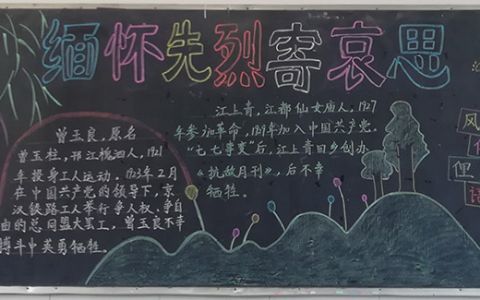 缅怀先烈寄哀思
曾玉良,原名
曾玉柱,邗江槐泗人,1921
年投身工人运动。1923年2月
在中国共产党的领导下,京
汉铁路工人举行争人权、争自
由的总同盟大罢工,曾玉良不幸
搏斗中英勇牺牲。
江上青,江都仙女庙人,1927
年参加革命,1929年加入中国共产党。
“七七事变”后,江上青回乡创办
《抗敌月刊》,后不幸
牺牲。
风
俚
语